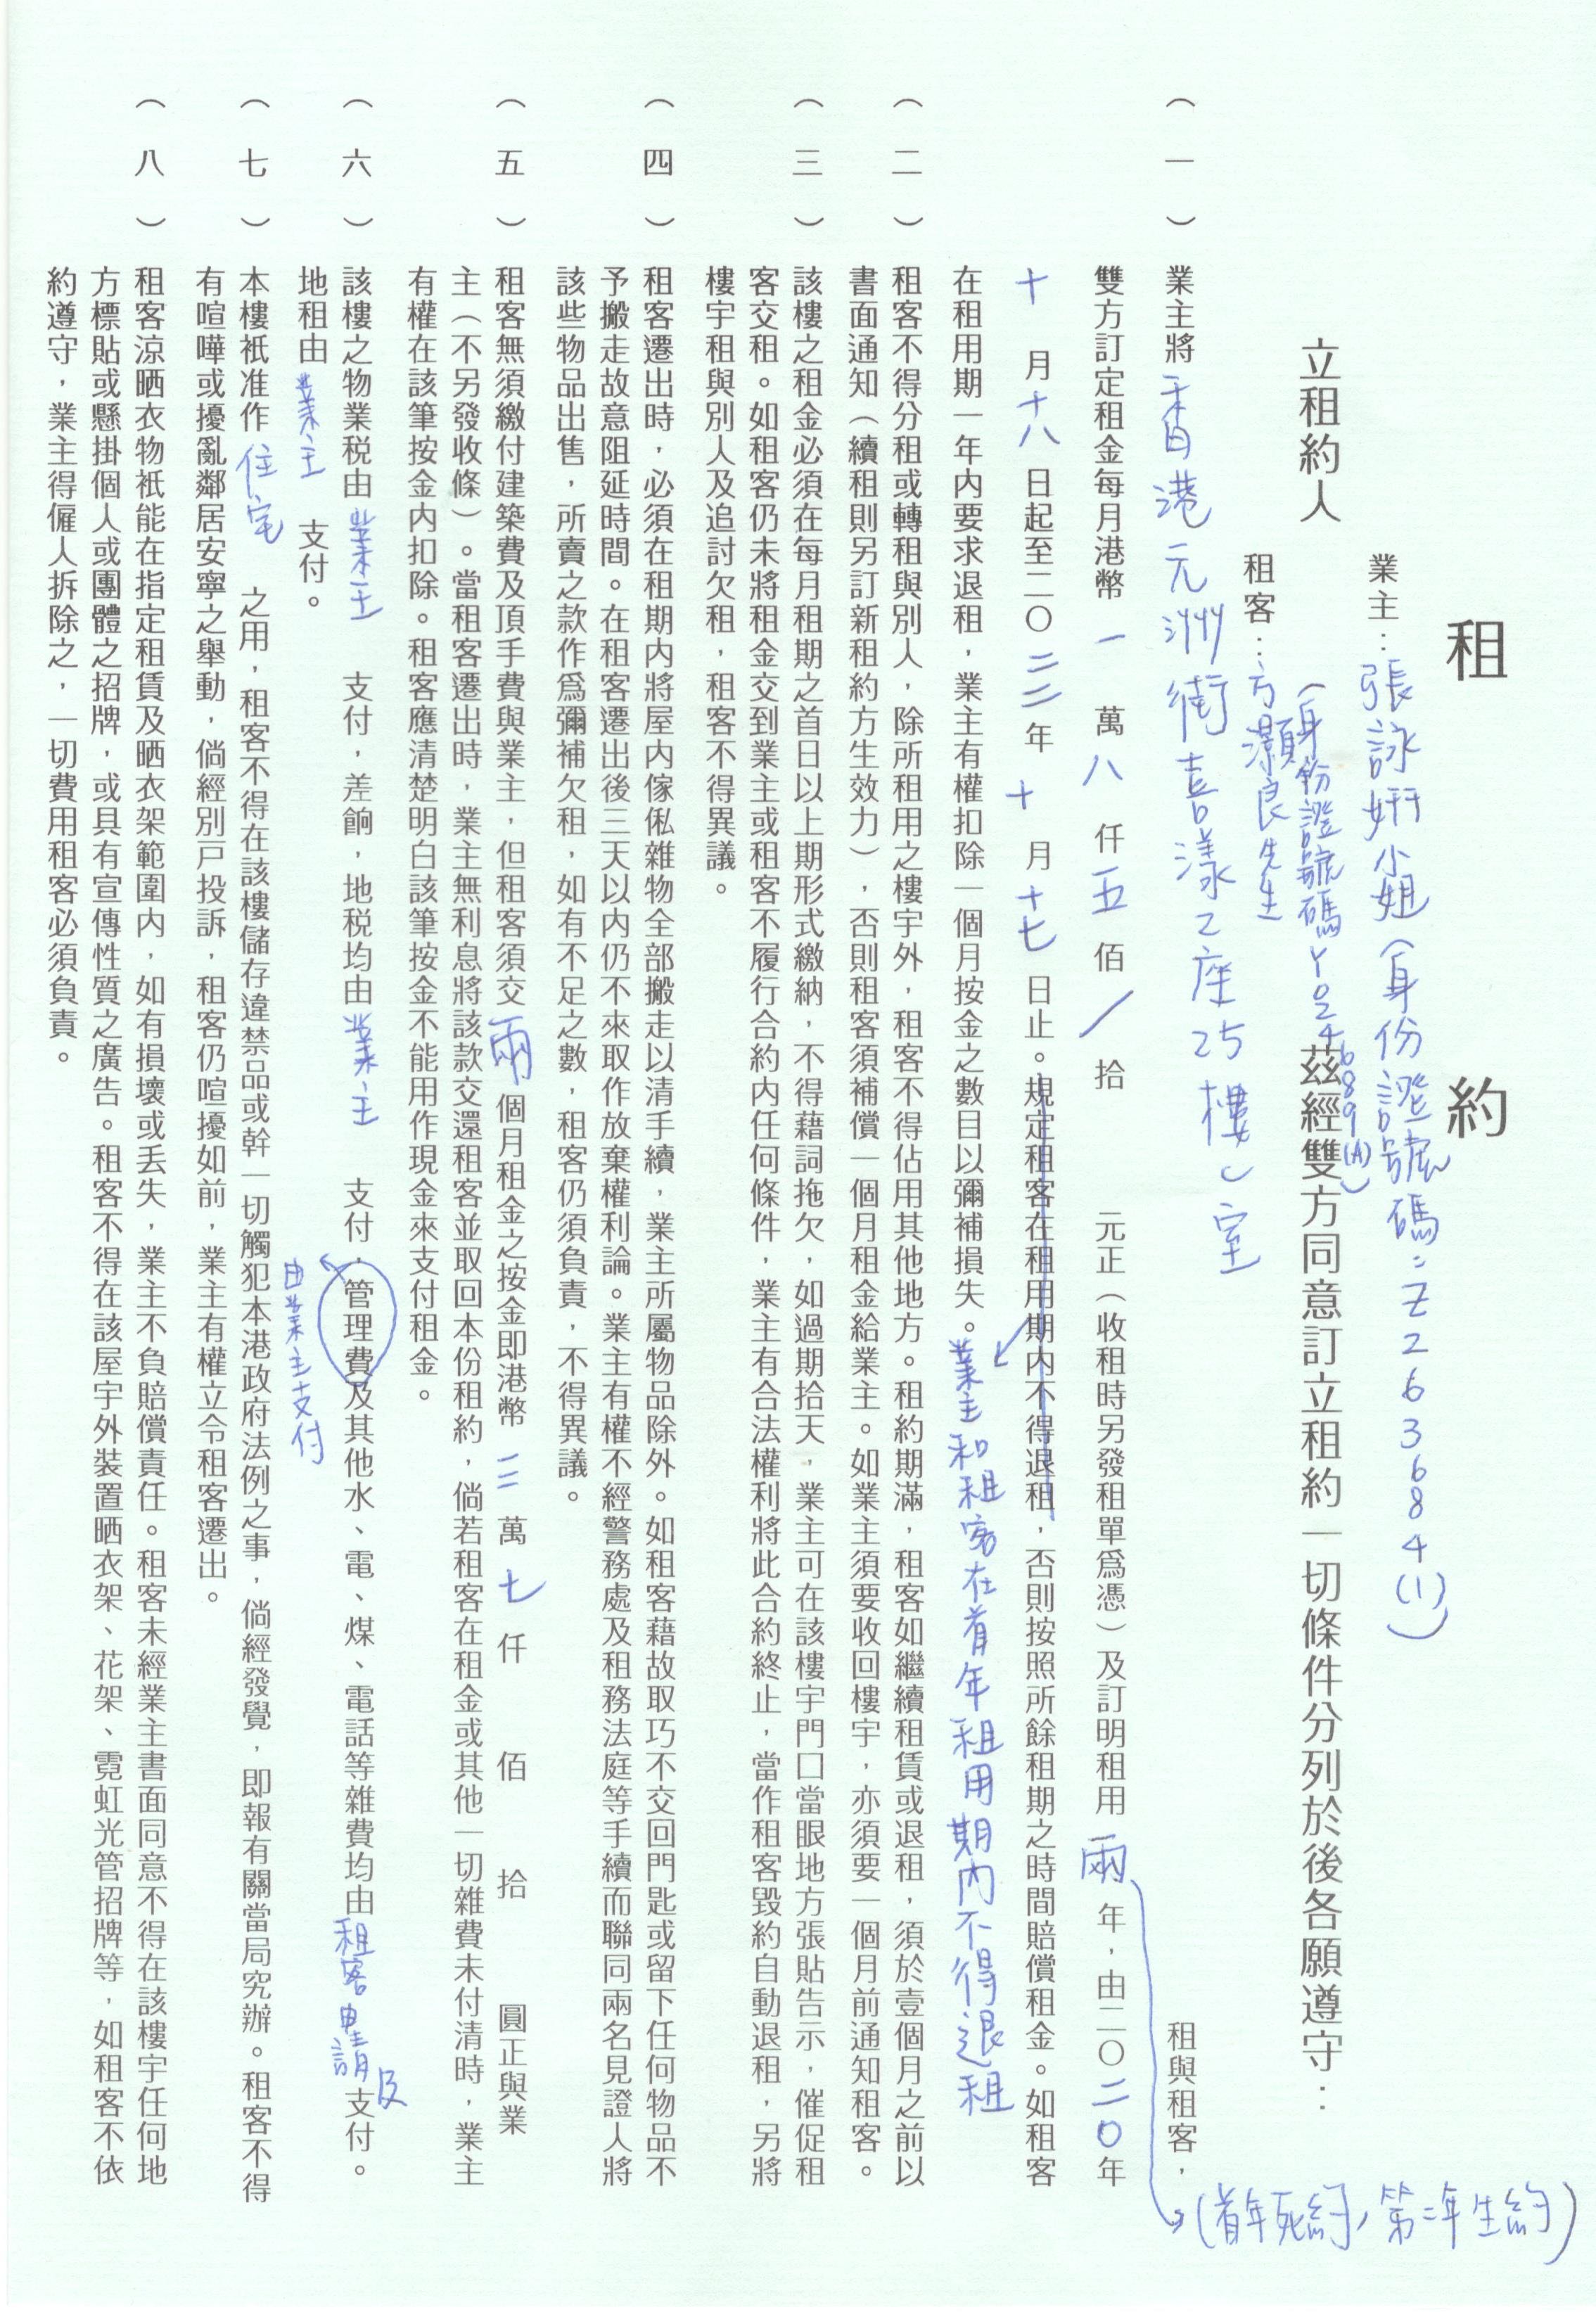 租約
業主：張詠妍小姐（身份證號碼：Z263684(1)）
立租約人 茲經雙方同意訂立租約一切條件分列於後各願遵守：
（身份證號碼Y0246889(A)）
租客：方灝良先生
（一）業主將香港元洲街喜漾2座25樓C室 租與租客，
雙方訂定租金每月港幣一萬八仟五佰／拾 元正（收租時另發租單為憑）及訂明租用兩年，由二〇二〇年
（首年死約，第二年生約）
十月十八日起至二〇二二年十月十七日止。規定租客在租用期內不得退租，否則按照所餘租期之時間賠償租金。如租客
在租用期一年內要求退租，業主有權扣除一個月按金之數目以彌補損失。業主和租客在首年租用期內不得退租
（二）租客不得分租或轉租與別人，除所租用之樓宇外，租客不得佔用其他地方。租約期滿，租客如繼續租賃或退租，須於壹個月之前以
書面通知（續租則另訂新租約方生效力），否則租客須補償一個月租金給業主。如業主須要收回樓宇，亦須要一個月前通知租客。
（三）該樓之租金必須在每月租期之首日以上期形式繳納，不得藉詞拖欠，如過期拾天，業主可在該樓宇門口當眼地方張貼告示，催促租
客交租。如租客仍未將租金交到業主或租客不履行合約內任何條件，業主有合法權利將此合約終止，當作租客毀約自動退租，另將
樓宇租與別人及追討欠租，租客不得異議。
（四）租客遷出時，必須在租期內將屋內傢俬雜物全部搬走以清手續，業主所屬物品除外。如租客藉故取巧不交回門匙或留下任何物品不
予搬走故意阻延時間。在租客遷出後三天以內仍不來取作放棄權利論。業主有權不經警務處及租務法庭等手續而聯同兩名見證人將
該些物品出售，所賣之款作為彌補欠租，如有不足之數，租客仍須負責，不得異議。
（五）租客無須繳付建築費及頂手費與業主，但租客須交兩個月租金之按金即港幣三萬七仟 佰 拾 圓正與業
主（不另發收條）。當租客遷出時，業主無利息將該款交還租客並取回本份租約，倘若租客在租金或其他一切雜費未付清時，業主
有權在該筆按金內扣除。租客應清楚明白該筆按金不能用作現金來支付租金。
（六）該樓之物業稅由業主 支付，差餉，地稅均由業主 支付，管理費及其他水、電、煤、電話等雜費均由租客申請及支付。
由業主支付
地租由業主 支付。
（七）本樓祇准作住宅 之用，租客不得在該樓儲存違禁品或幹一切觸犯本港政府法例之事，倘經發覺，即報有關當局究辦。租客不得
有喧嘩或擾亂鄰居安寧之舉動，倘經別戶投訴，租客仍喧擾如前，業主有權立令租客遷出。
（八）租客涼晒衣物祇能在指定租賃及晒衣架範圍內，如有損壞或丟失，業主不負賠償責任。租客未經業主書面同意不得在該樓宇任何地
方標貼或懸掛個人或團體之招牌，或具有宣傳性質之廣告。租客不得在該屋宇外裝置晒衣架、花架、霓虹光管招牌等，如租客不依
約遵守，業主得僱人拆除之，一切費用租客必須負責。